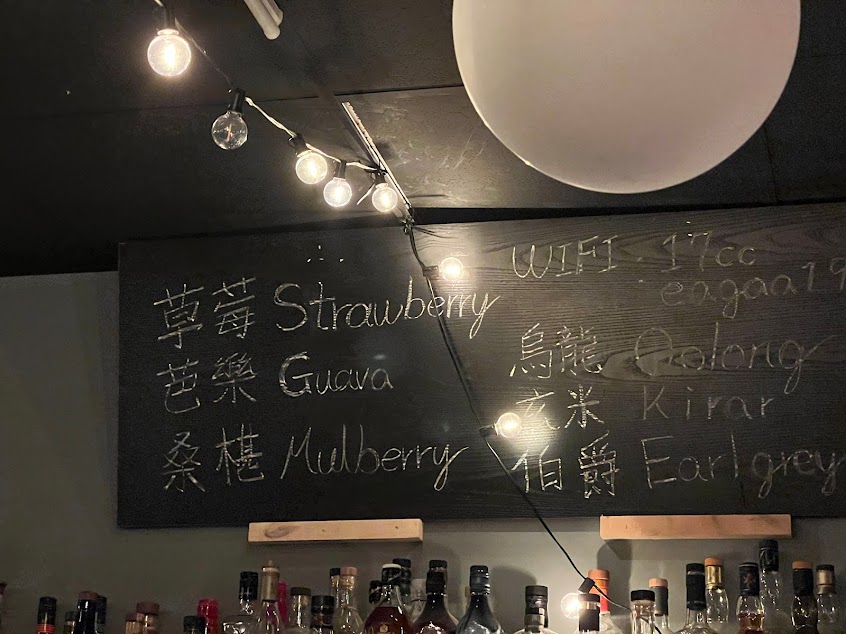 草莓 Strawberry
芭樂 Guava
桑椹 Mulberry
WIFI - 17cc
eagaa19
烏龍 Oolong
玄米 Kirar
伯爵 Earl grey